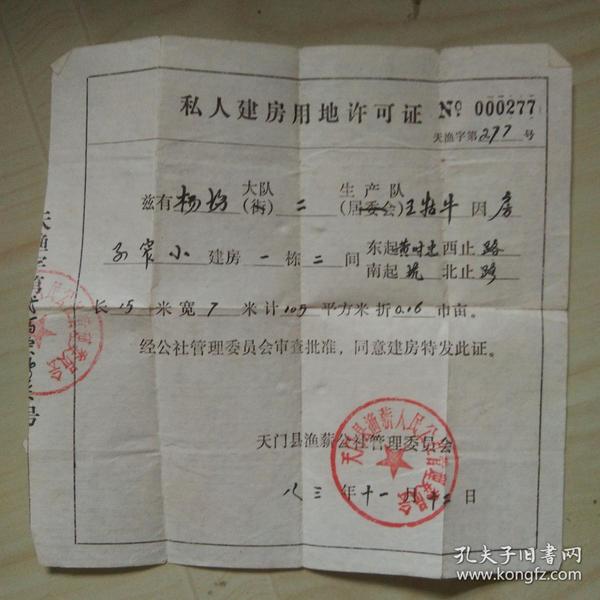 私人建房用地许可证 № 000277
天渔字第277号
兹有杨场大队(街)二生产队(居委会)王牯牛因房
子窄小建房一栋二间东起黄时忠西止路南起坑北止路
长15米宽7米计105平方米折0.16市亩。
经公社管理委员会审查批准，同意建房特发此证。
天门县渔薪公社管理委员会
八三年十一月十二日
天门县渔薪人民公社管理委员会
天渔字第贰百
号
孔夫子旧书网
www.kongfz.com